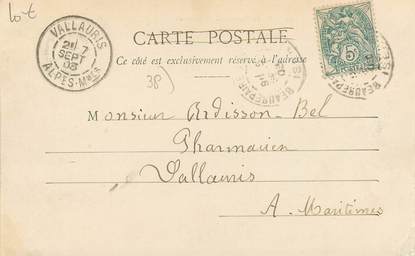 lot
VALLAURIS
21 7
SEPT
03
ALPES-Mmes
CARTE POSTALE
Ce côté est exclusivement réservé à l'adresse
38)
BEAUREPAIRE
5
Monsieur Ardisson-Bel
Pharmacien
Vallauris
A. Maritimes